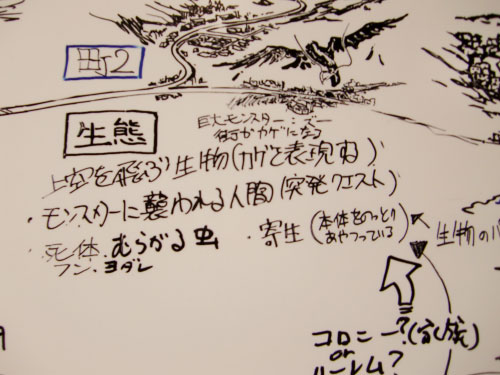 町2
巨大モンスター:ズー
街がカゲになる
生態
上空を飛ぶ生物(カゲを表現する)
・モンスターに襲われる人間(突発クエスト)
・死体.むらがる虫
フン.ヨダレ
・寄生(本体をのっとりあやつっている)
生物の
コロニー?(家族)
or
ハーレム?